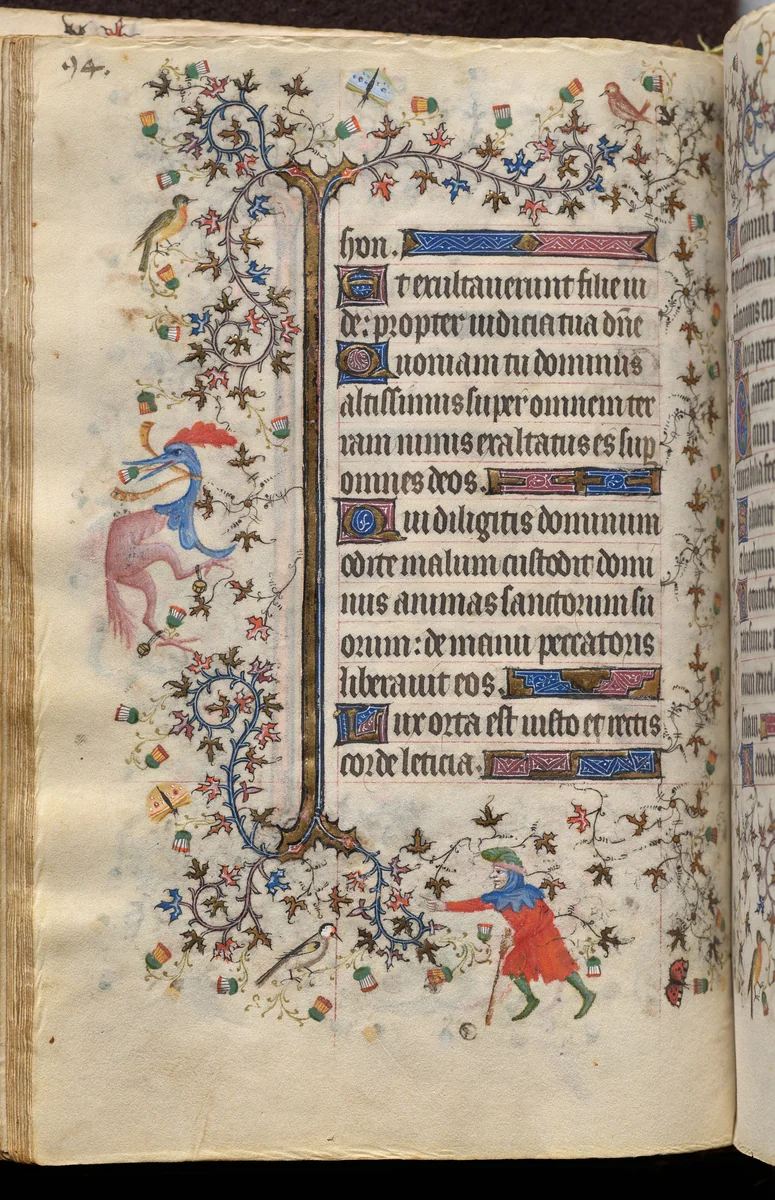 94.
hon.
Et exultauerunt filie iu
de: propter iudicia tua dñe
Quoniam tu dominus
altissimus super omnem ter
ram nimis exaltatus es sup
omnes deos.
Qui diligitis dominum
odite malum custodit domi
nus animas sanctorum su
orum: de manu peccatoris
liberauit eos.
Lux orta est iusto et rectis
corde leticia.